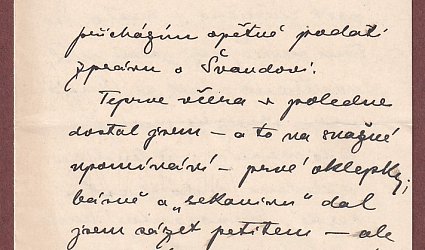 přicházím opětně podati
zprávu o Švandovi.
Teprve včera v poledne
dostal jsem – a to na snažné
upomínání – prvé oklepky;
báseň a „sekaninu" dal
jsem sázet petitem – ale